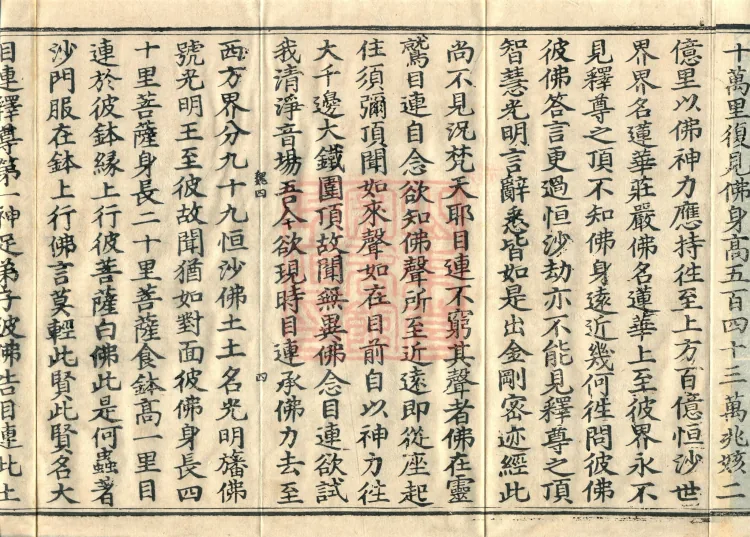 十萬里復見佛身高五百四十三萬兆姟二
億里以佛神力應持往至上方百億恒沙世
界界名蓮華莊嚴佛名蓮華上至彼界永不
見釋尊之頂不知佛身遠近幾何往問彼佛
彼佛荅言更過恒沙劫亦不能見釋尊之頂
智慧光明言辭悉皆如是出金剛密迹經此
尚不見況梵天耶目連不窮其聲者佛在靈
鷲目連自念欲知佛聲所至近遠即從座起
往須彌頂聞如來聲如在目前自以神力往
大千邊大鐵圍頂故聞無異佛念目連欲試
我清淨音場吾今欲現時目連承佛力去至
四
西方界分九十九恒沙佛土土名光明旛佛
號光明王至彼故聞猶如對面彼佛身長四
十里菩薩身長二十里菩薩食鉢高一里目
連於彼鉢緣上行彼菩薩白佛此是何蟲著
沙門服在鉢上行佛言莫輕此賢此賢名大
目連釋尊第一神足弟子彼佛告目連此土